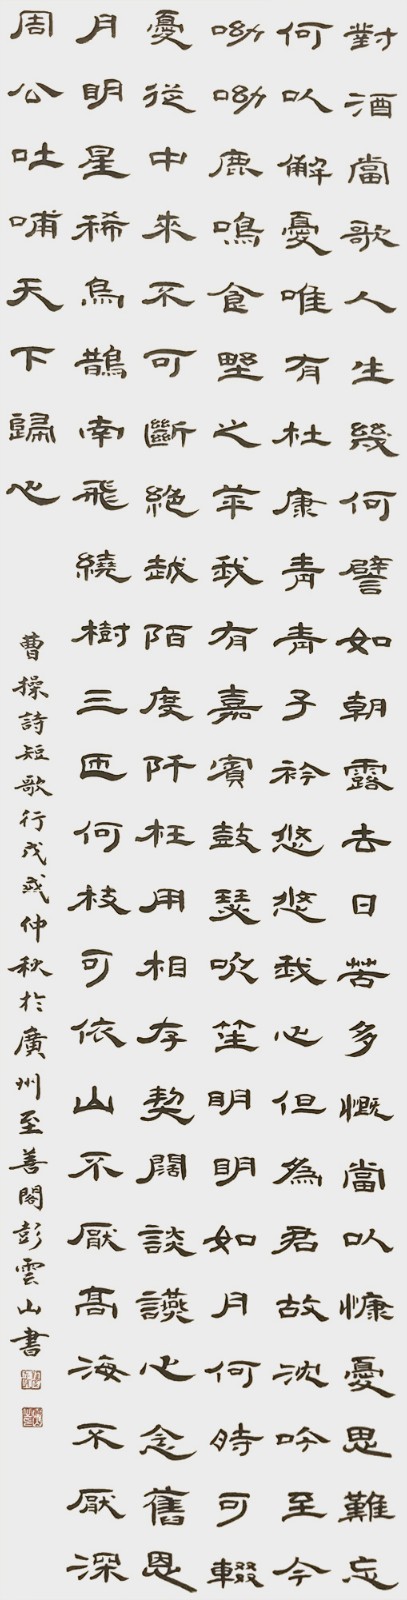 對酒當歌人生幾何譬如朝露去日苦多慨當以慷憂思難忘
何以解憂唯有杜康青青子衿悠悠我心但為君故沈吟至今
呦呦鹿鳴食野之苹我有嘉賓鼓瑟吹笙明明如月何時可輟
憂從中來不可斷絕越陌度阡枉用相存契闊談讌心念舊恩
月明星稀烏鵲南飛繞樹三匝何枝可依山不厭高海不厭深
周公吐哺天下歸心
曹操詩短歌行戊戌仲秋於廣州至善閣彭雲山書